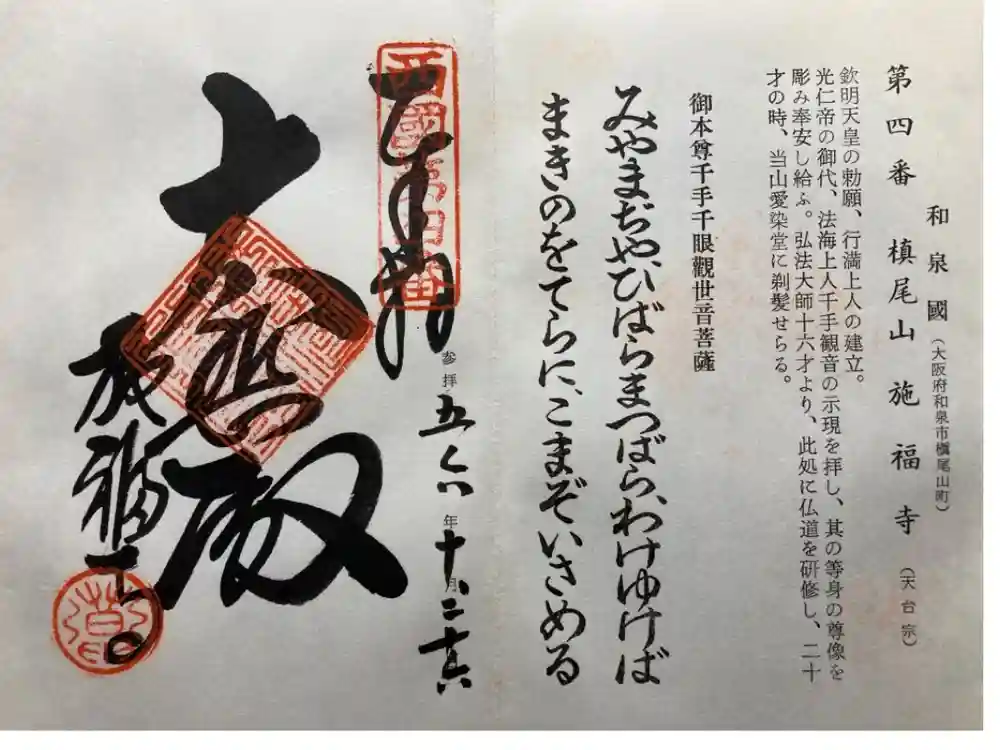 和泉國（大阪府和泉市槇尾山町）
第四番 槙尾山施福寺（天台宗）
欽明天皇の勅願、行満上人の建立。
光仁帝の御代、法海上人千手観音の示現を拝し、其の等身の尊像を
彫み奉安し給ふ。弘法大師十六才より、此処に仏道を研修し、二十
才の時、当山愛染堂に剃髪せらる。
御本尊千手千眼觀世音菩薩
みやまぢや、ひばらまつばら、わけゆけば
まきのをてらに、ごまぞいさめる
西國第四番
参拝
年十月二十六
大悲殿
施福寺